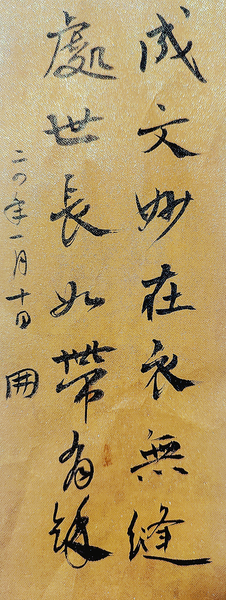 成文妙在衣無縫
處世長如帶有餘
二〇年一月十日